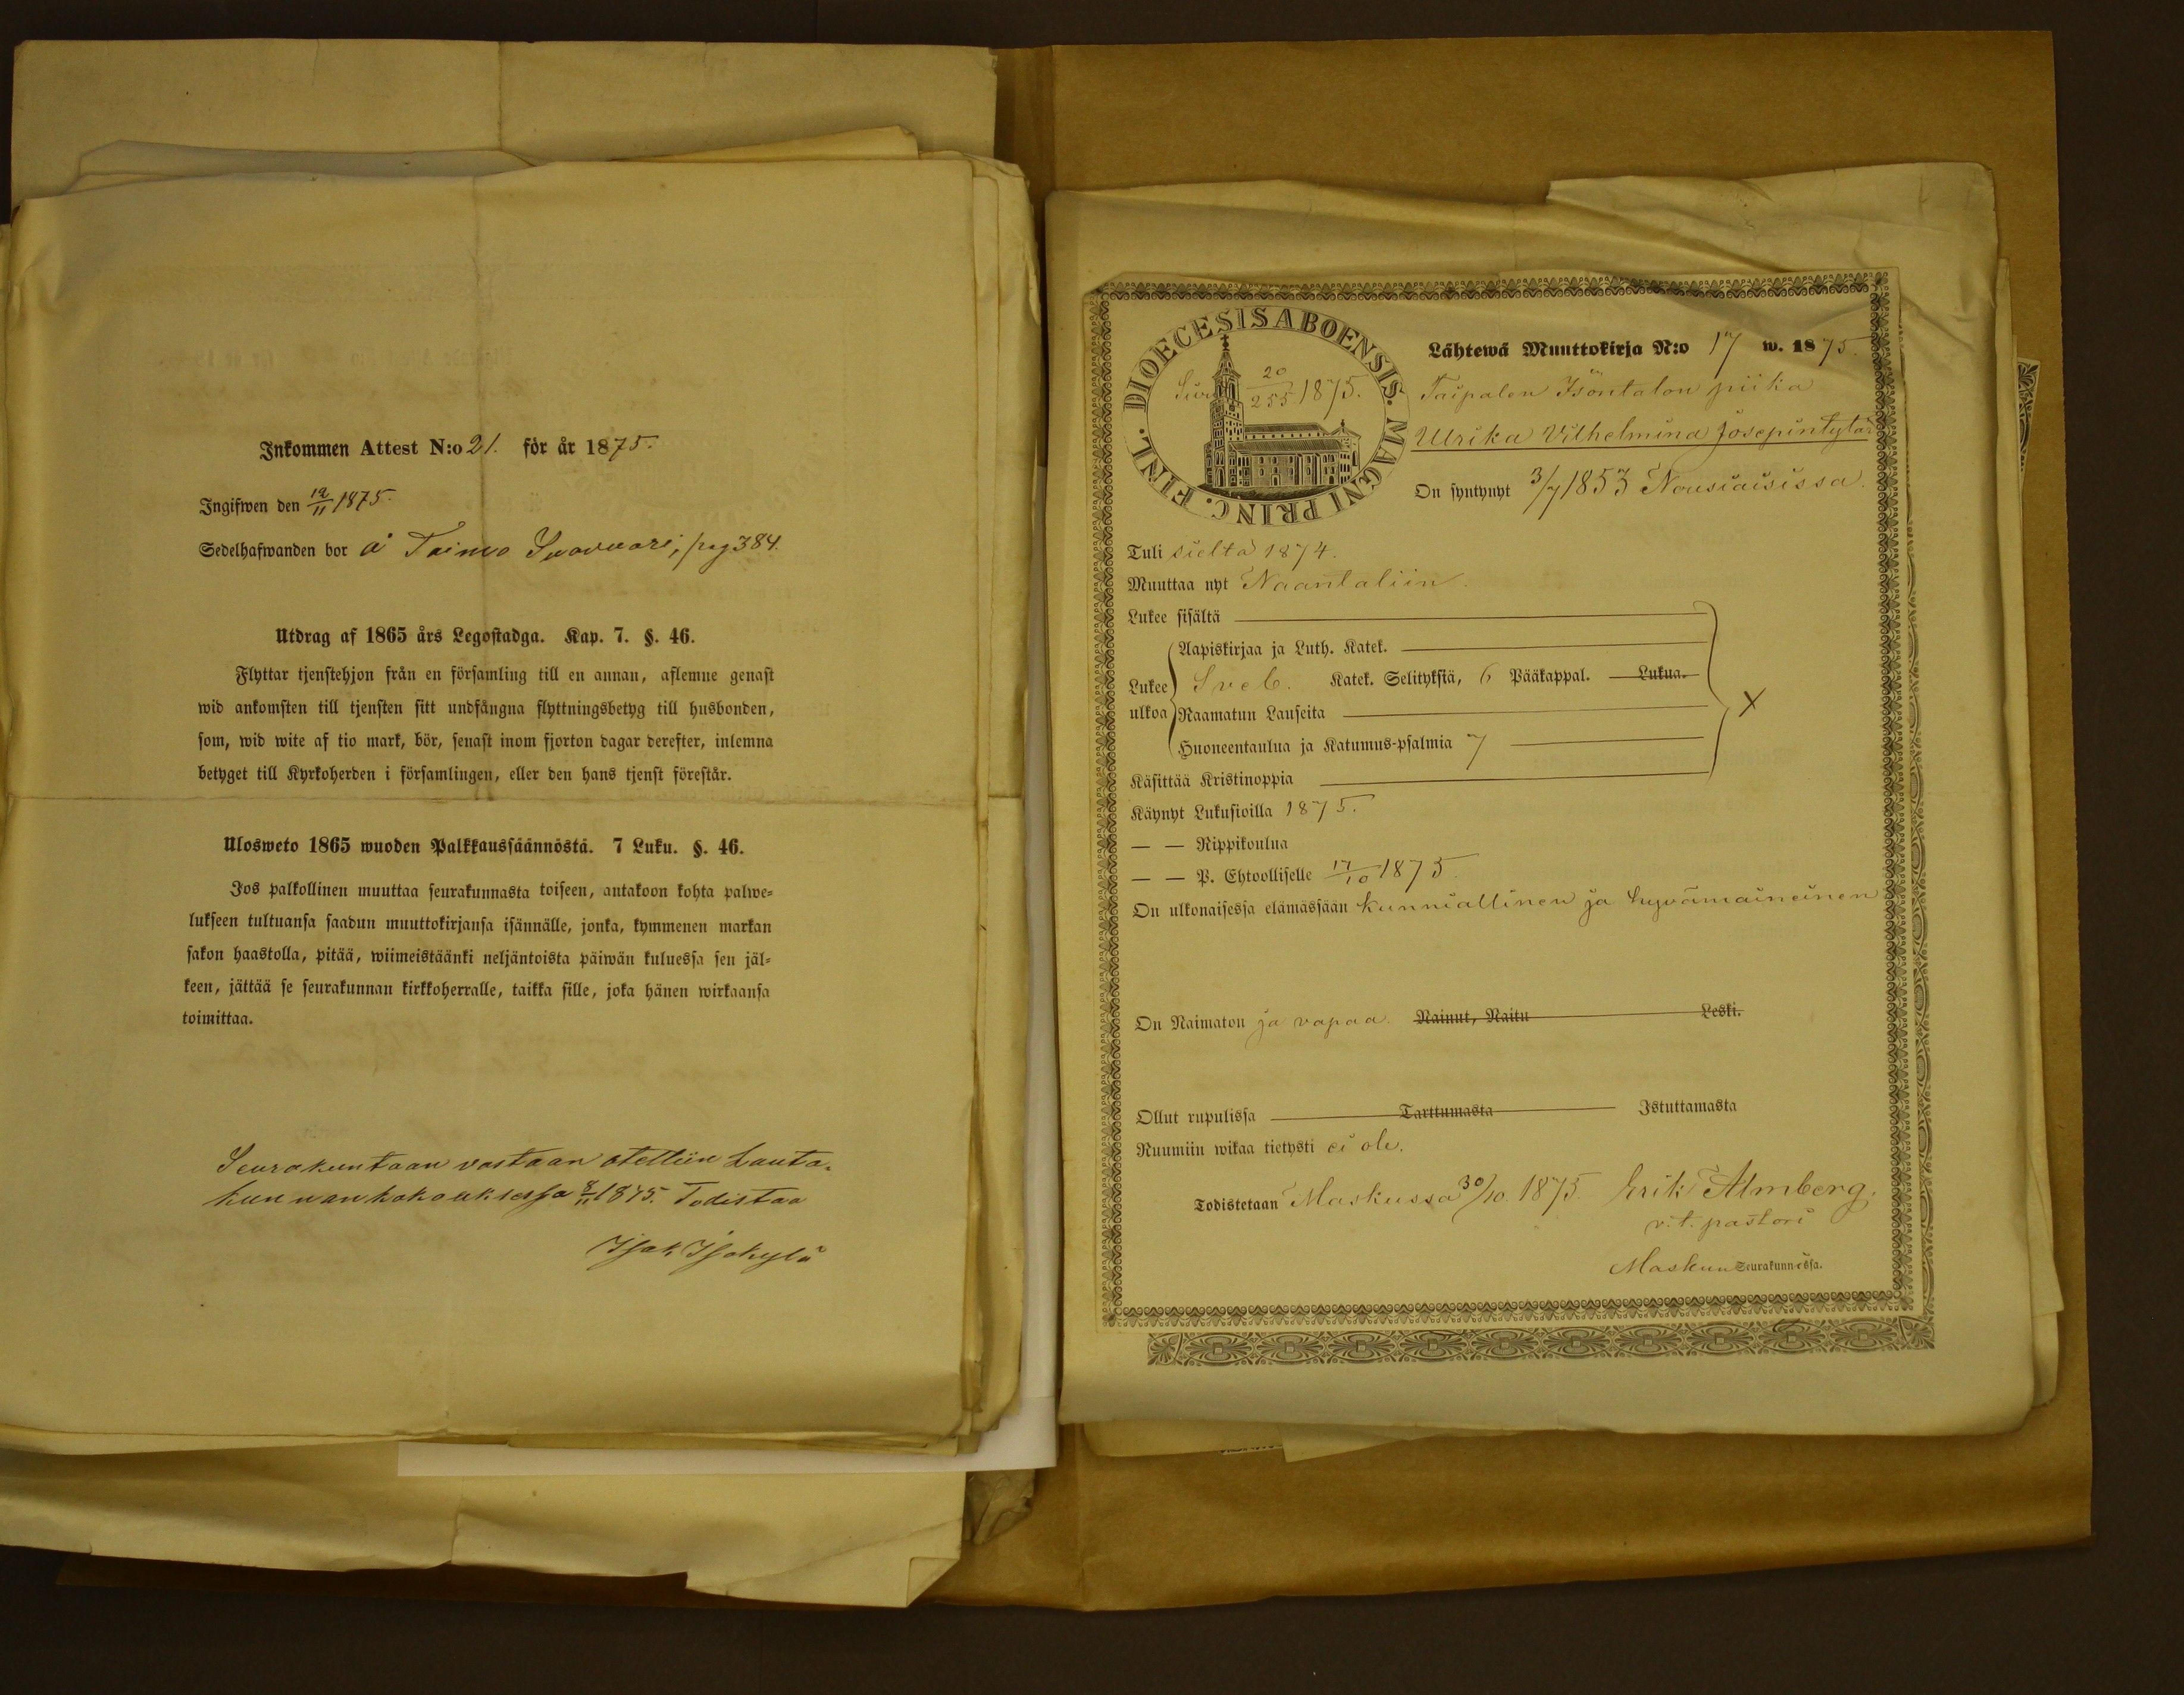 Inkommen Attest N:o 21. för år 1875.
Ingifwen den 12/11 1875.
Sedelhafwanden bor å Taimo, pag 384.
Utdrag af 1865 års Legostadga. Kap. 7. §. 46.
Flyttar tjenstehjon från en församling till en annan, aflemne genast
wid ankomsten till tjensten sitt undfångna flyttningsbetyg till husbonden,
som, wid wite af tio mark, bör, senast inom fjorton dagar derefter, inlemna
betyget till Kyrkoherden i församlingen, eller den hans tjenst förestår.
Ulosweto 1865 wuoden Palkkaussäännöstä. 7 Luku. §. 46.
Jos palkollinen muuttaa seurakunnasta toiseen, antakoon kohta palwe-
lukseen tultuansa saadun muuttokirjansa isännälle, jonka, kymmenen markan
sakon haastolla, pitää, wiimeistäänki neljäntoista päiwän kuluessa sen jäl-
keen, jättää se seurakunnan kirkkoherralle, taikka sille, joka hänen wirkaansa
toimittaa.
Seurakuntaan vastaan otettiin Lauta-
kunnan kokouksessa 8/11 1875. Todistaa
Isak Isokylä
DIOECESIS ABOENSIS. MAGNI PRINC. FINL.
20/255 1875.
Lähtewä Muuttokirja N:o 17 w. 1875.
Taipalen Isontalon piika
Ulrika Vilhelmina Josepintytär
On syntynyt 3/7 1853 Nousiaisissa.
Tuli sieltä 1874.
Muuttaa nyt Naantaliin.
Lukee sisältä
Aapiskirjaa ja Luth. Katek.
Lukee ulkoa
Sveb. Katek. Selityksiä, 6 Pääkappal. Lukua.
Raamatun Lauseita
Huoneentaulua ja Katumus-psalmia 7
X
Käsittää Kristinoppia
Käynyt Lukusioilla 1875.
— — Rippikoulua
— — P. Ehtoolliselle 17/10 1875.
On ulkonaisessa elämässään kunniallinen ja hyvämaineinen
On Naimaton ja vapaa. Nainut, Naitu Leski.
Ollut rupulissa Tarttumasta Istuttamasta
Ruumiin wikaa tietysti ei ole.
Todistetaan Maskussa 30/10 1875. Erik Almberg.
v.t. pastori
Maskun Seurakunnassa.